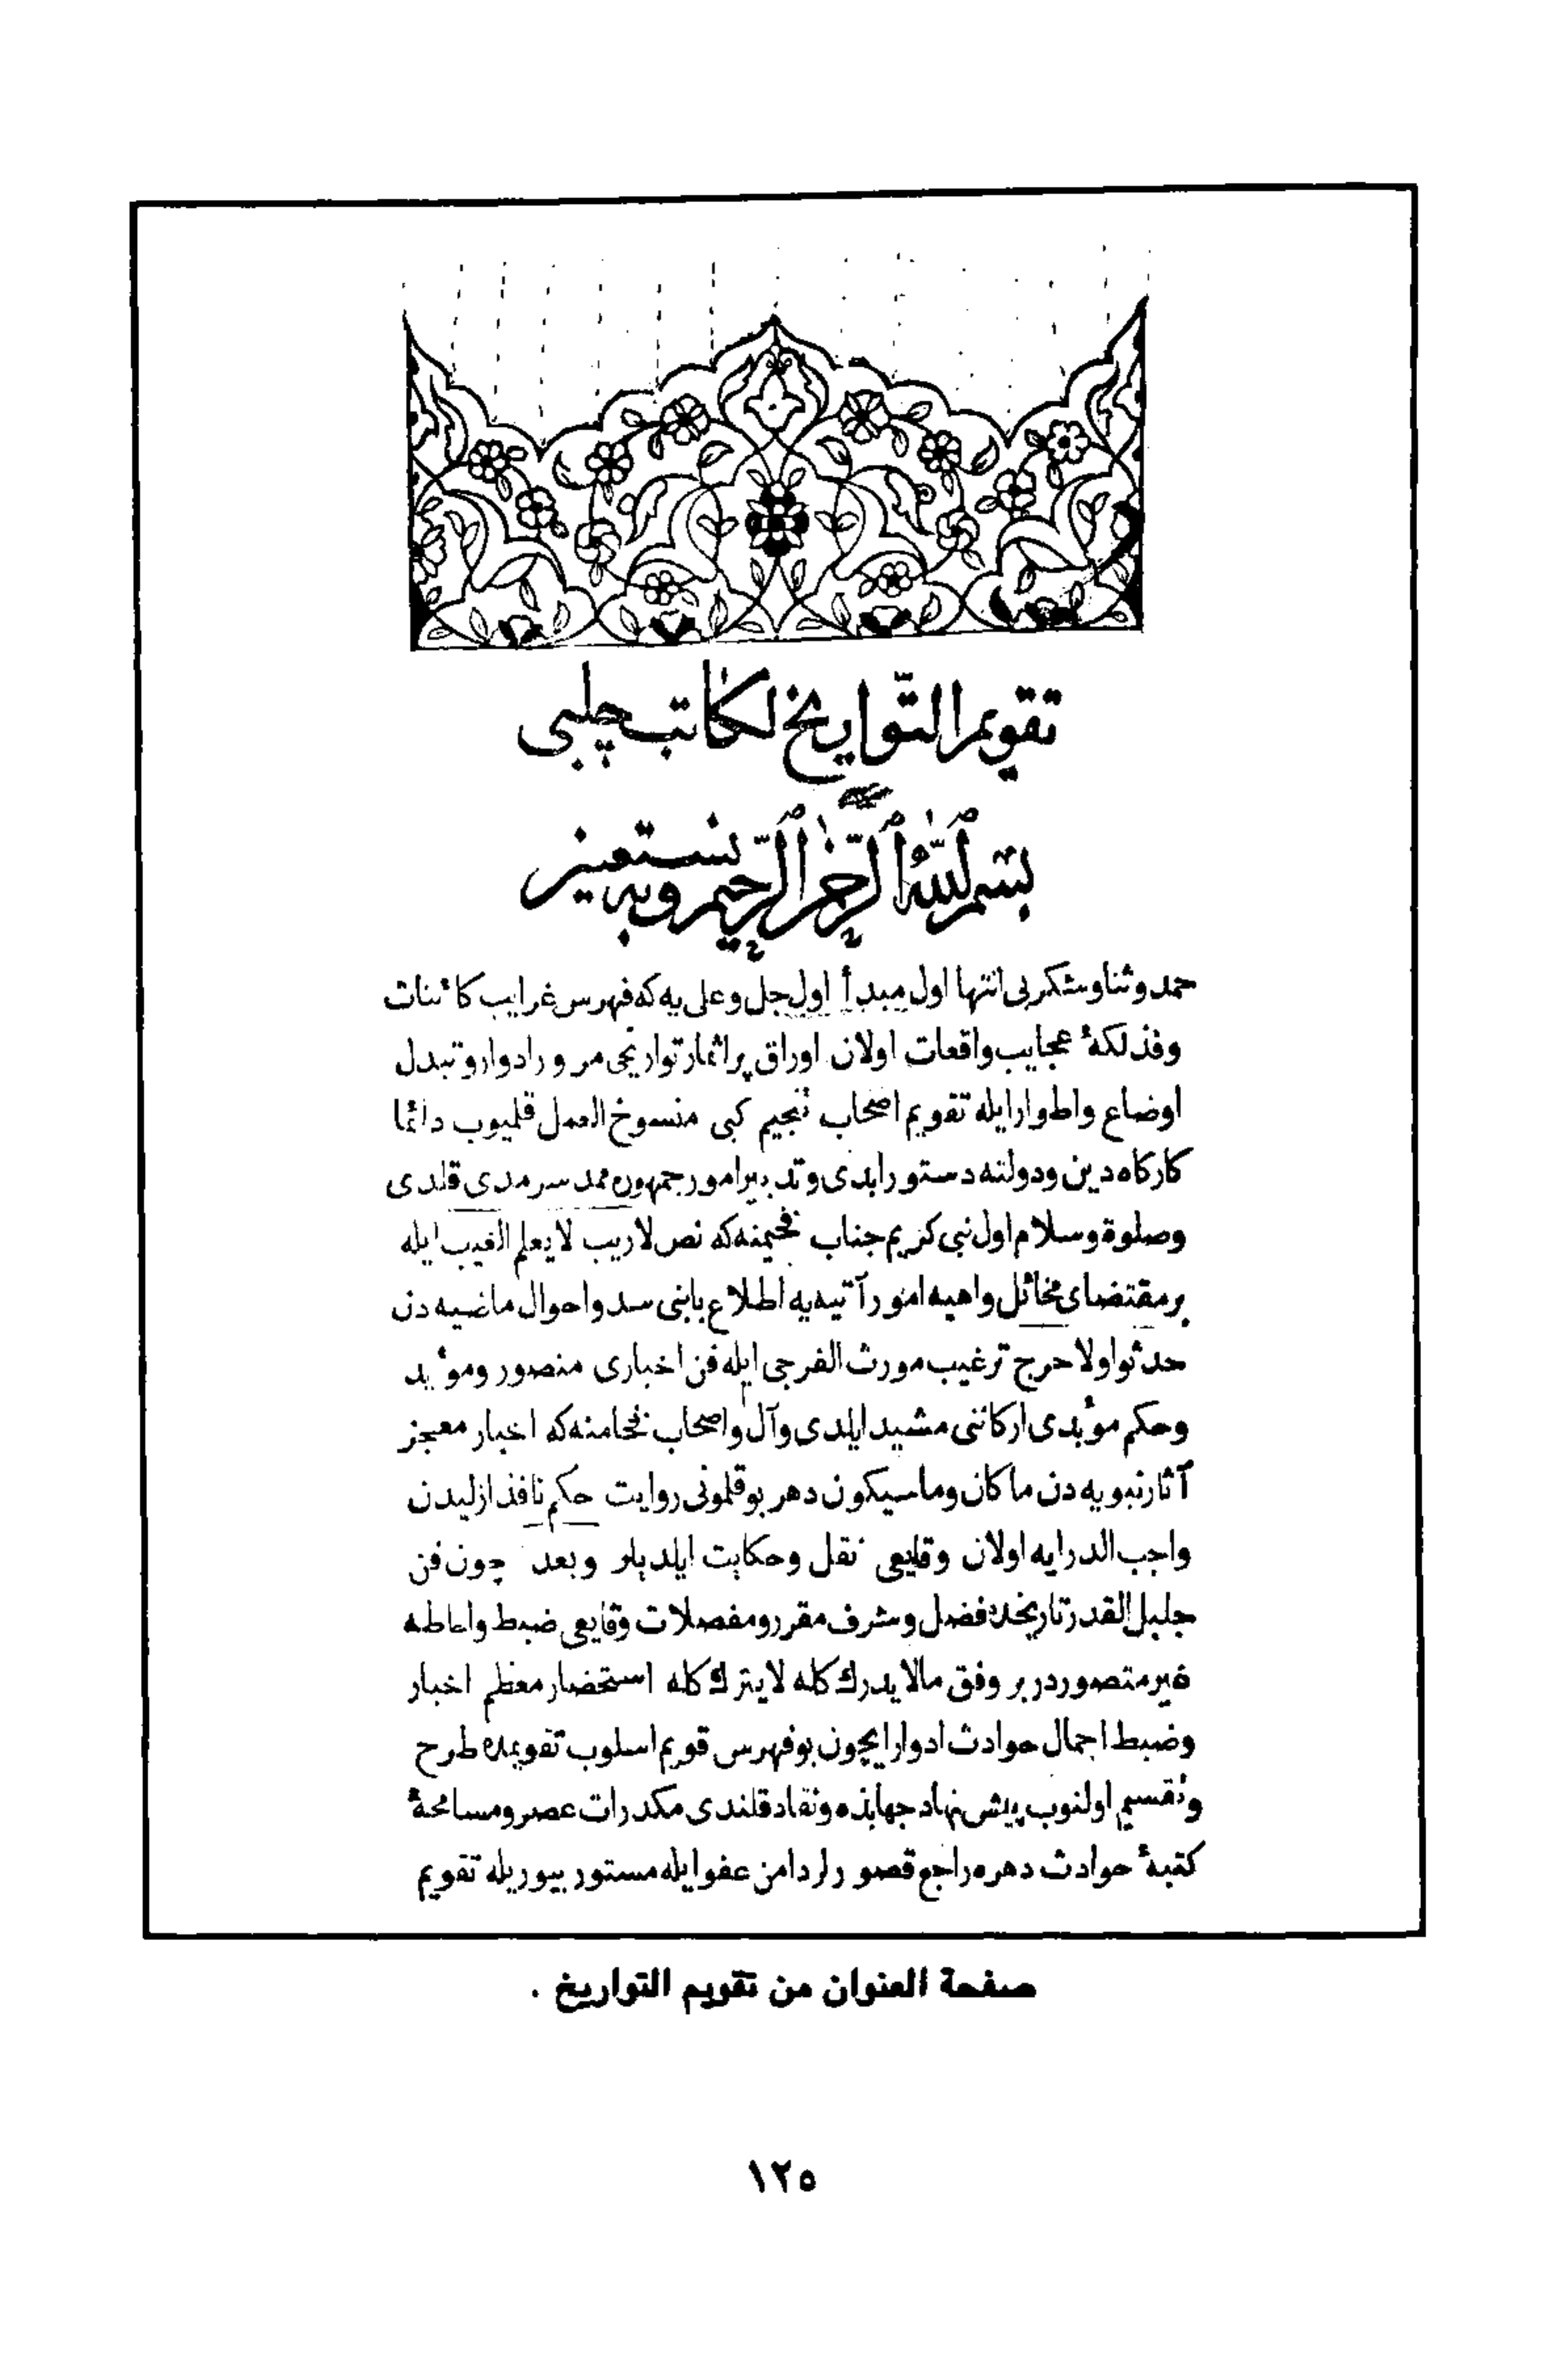 تقويم التّواريخ لكاتب چلبی
بسم الله الرحمن الرحيم وبه نستعين
حمد وثنا وشكر بی انتها اول مبدأ اول جل وعلی یه كه فهرس غرایب كائنات
وفذلكهٔ عجایب واقعات اولان اوراق پراثمار تواریخی مرور ادوار وتبدل
اوضاع واطوار ایله تقویم اصحاب تنجیم كبی منسوخ العمل قلمیوب دائما
كاركاه دین ودولته دستور ابدی وتدبیر امور جمهوره ممد سرمدی قلدی
وصلوة وسلام اول نبی كزیم جناب فخیمنه كه نص لاریب لا یعلم الغیب ایله
بر مقتضای مخائل واهیه امور آتیه یه اطلاع بابنی سد واحوال ماضیه دن
حدثوا ولا حرج ترغیب مورث الفرجی ایله فن اخباری منصور ومؤید
وحكم مؤبدی اركاننی مشید ایلدی وآل واصحاب فخامنه كه اخبار معجز
آثار نبویه دن ما كان وما سیكون دهر بوقلمونی روایت حكم نافذ ازلیدن
واجب الدرایه اولان وقایعی نقل وحكایت ایلدیلر وبعد چون فن
جلیل القدر تاریخك فضل وشرف مقرر ومفصلات وقایعی ضبط واحاطه
غیر متصوردر بر وفق مالا یدرك كله لا یترك كله استحضار معظم اخبار
وضبط اجمال حوادث ادوار ایچون بو فهرس قویم اسلوب تقویمده طرح
وتقسیم اولنوب پیش نهاد جهابذه ونقاد قلندی مكدرات عصر ومسامحهٔ
كتبهٔ حوادث دهره راجع قصورلر دامن عفو ایله مستور بیوریله تقویم
صفحة العنوان من تقويم التواريخ .
١٢٥